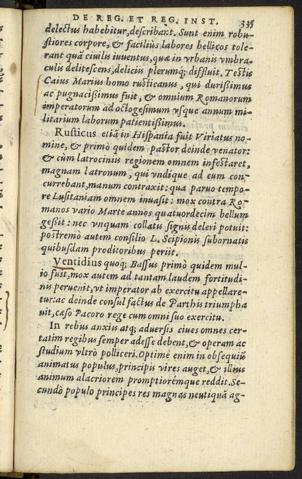 DE REG. ET REG. INST. 335
delectus habebitur, describant. Sunt enim robu-
stiores corpore, & facilius labores bellicos tole-
rant quã ciuilis iuuentus, qua in vrbanis vmbra-
culis delitescens, delicijs plerumq; diffluit. Testis
Caius Marius homo rusticanus, qui durissimus
ac pugnacissimus fuit, & omnium Romanorum
imperatorum ad octogesimum vsque annum mi-
litarium laborum patientissimus.
Rusticus etiã in Hispania fuit Viriatus no-
mine, & primò quidem pastor deinde venator:
& cùm latrocinijs regionem omnem infestaret,
magnam latronum, qui vndique ad eum con-
currebant, manum contraxit: qua paruo tempo-
re Lusitaniam omnem inuasit: mox contra Ro-
manos vario Marte annos quatuordecim bellum
gessit: nec vnquam collatis signis deleri potuit:
postremò autem consilio L. Scipionis subornatis
quibusdam proditoribus perijt.
Ventidius quoq; Bassus primò quidem mul-
io fuit, mox autem ad tantam laudem fortitudi-
nis peruenit, vt imperator ab exercitu appellare-
tur: ac deinde consul factus de Parthis triumpha
uit, cæso Pacoro rege cum omni suo exercitu.
In rebus anxijs atq; aduersis ciues omnes cer-
tatim regibus semper adesse debent, & operam ac
studium vltrò polliceri. Optimè enim in obsequiũ
animatus populus, principis vires auget, & illius
animum alacriorem promptiorémque reddit. Se-
cundò populo principes res magnas neutiquã ag-